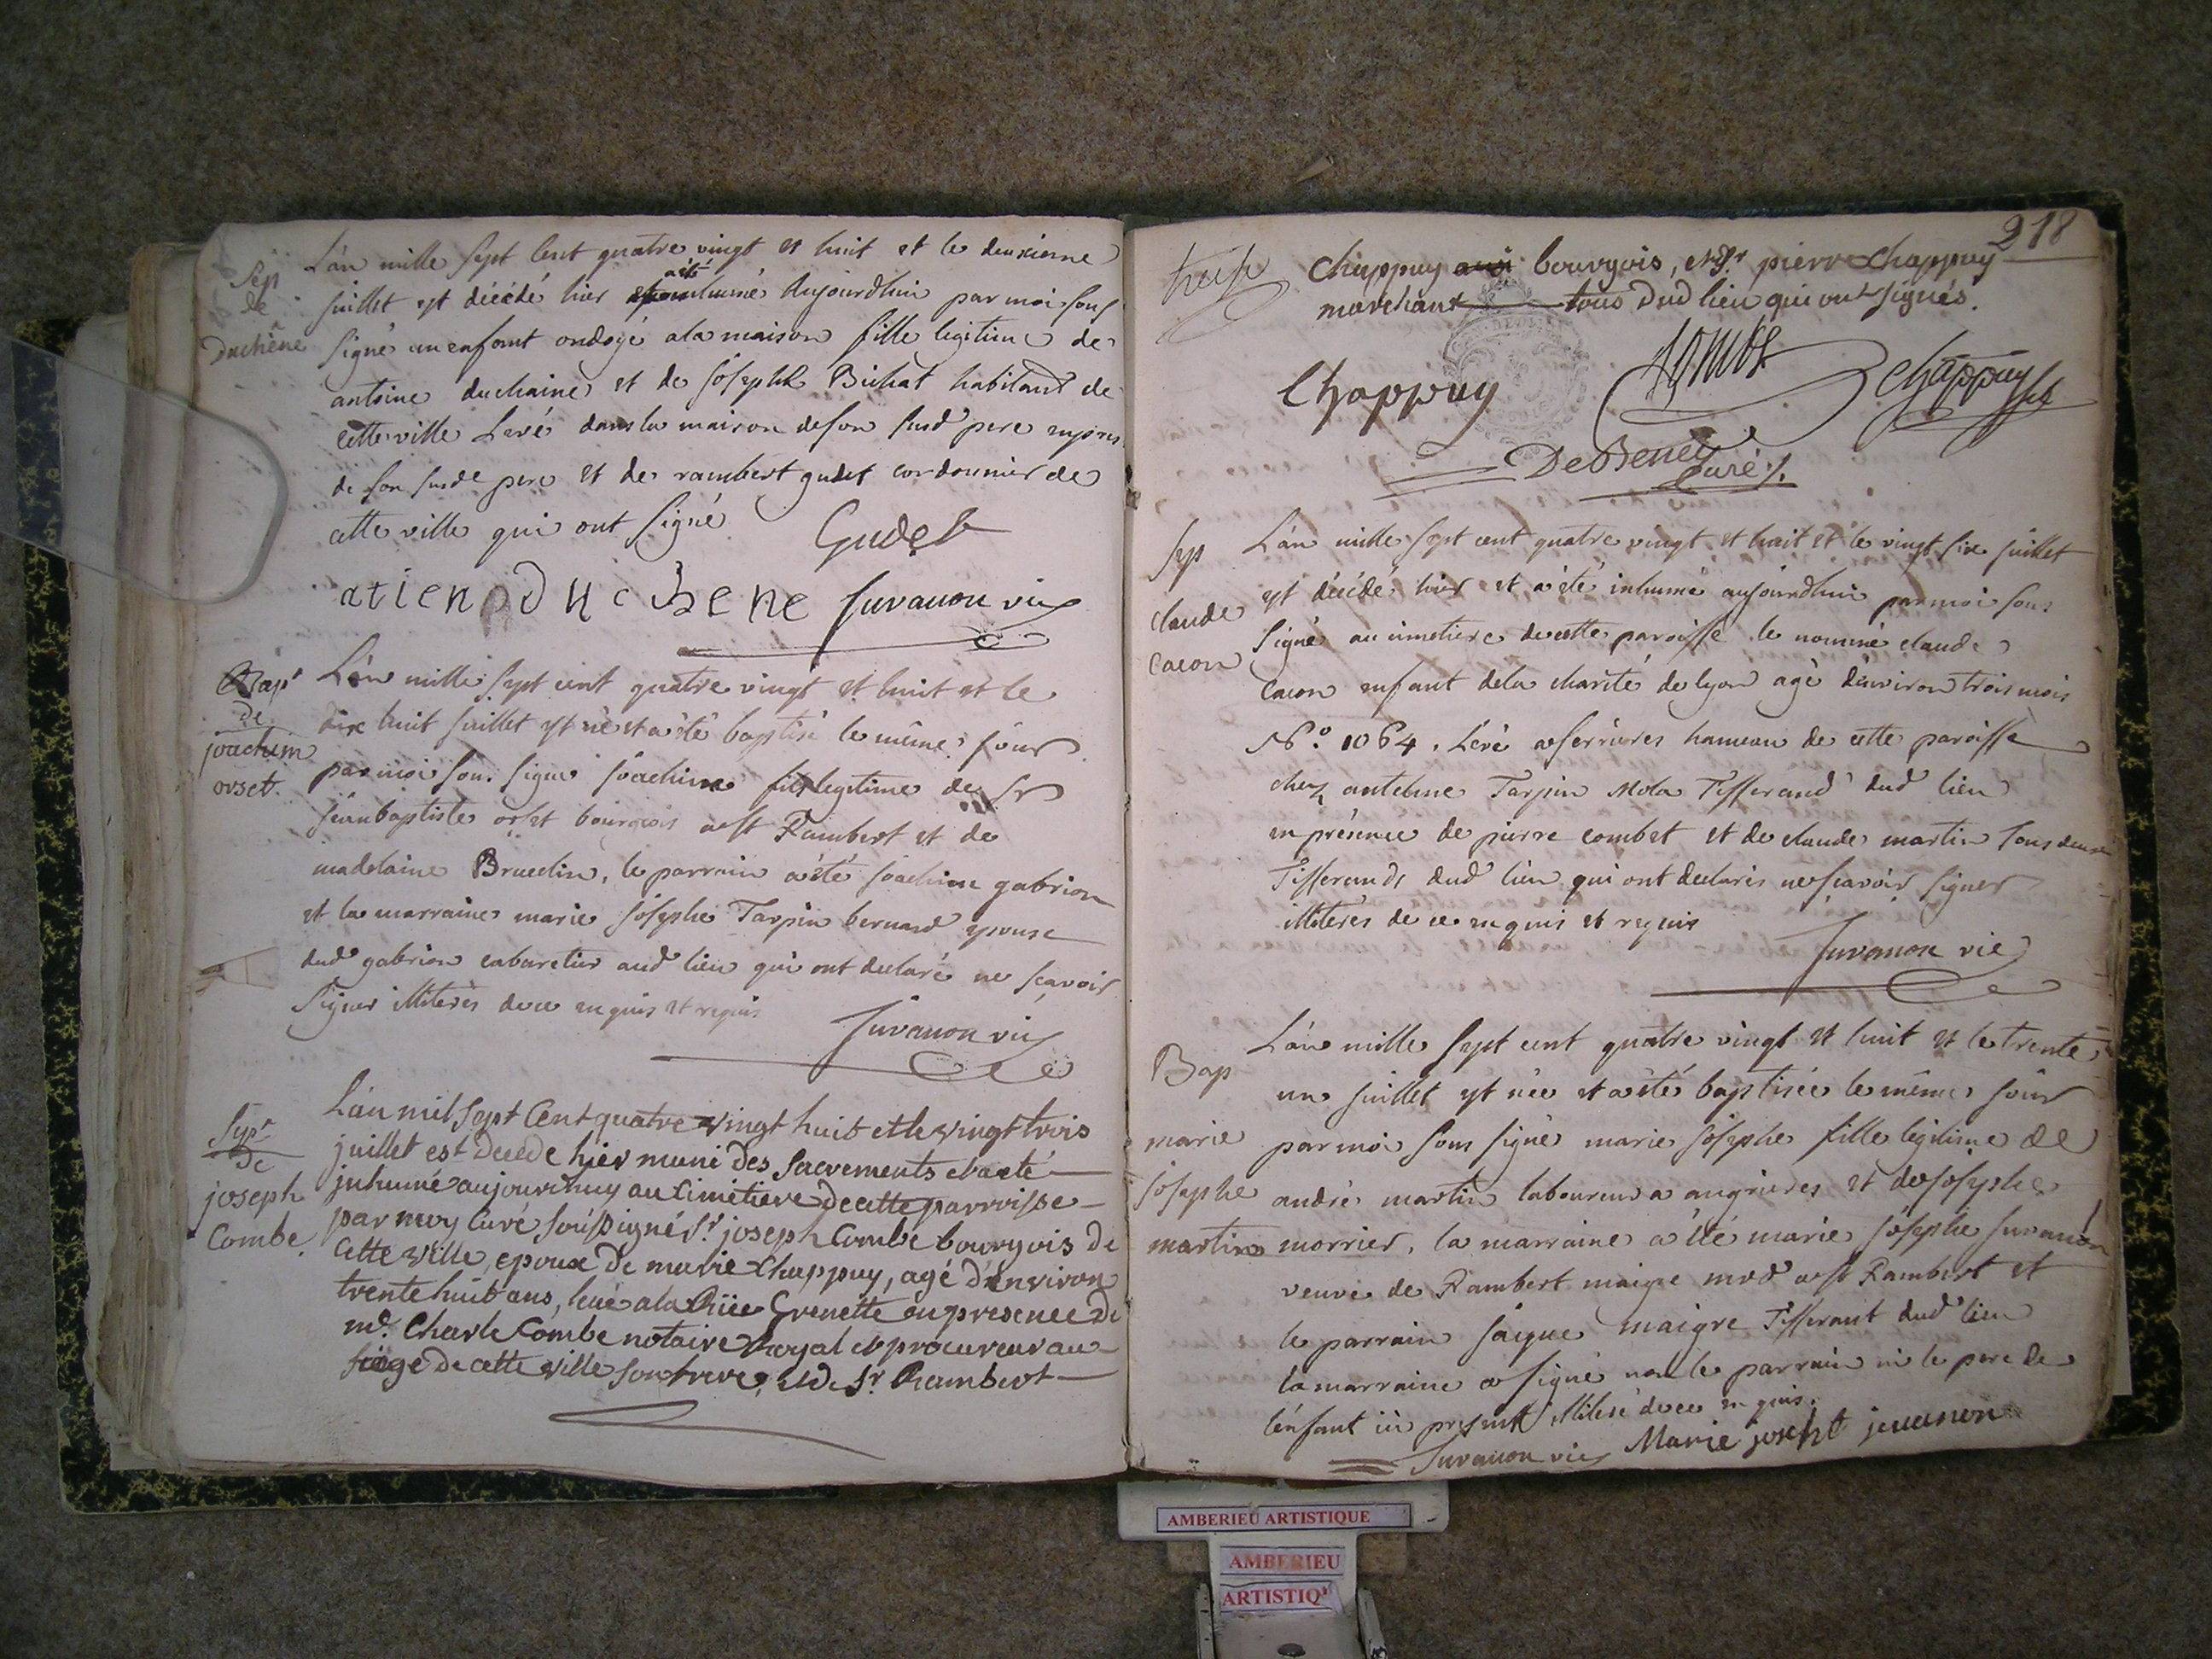 Sep
de
Duchêne
L'an mille sept cent quatre vingt et huit et le deuxieme
juillet est décédé hier a été inhumé aujourdhui par moi sous
signé un enfant ondoyé a la maison fille legitime de
antoine duchaine et de joseph Bichat habitant de
cette ville Levé dans la maison de son susd pere
de son susd pere et de rambert gudet cordonnier de
cette ville qui ont signé
Gudet
atien duchene juvanon vic
Bapt
de
joachim
orset.
L'an mille sept cent quatre vingt et huit et le
dixe huit juillet est né et a été baptisé le même jour
par moi sous signé joachim fils legitime de Sr
jean baptiste orset bourgois a st Rambert et de
madelaine Bruelin, le parrain a été joachim gabrion
et la marraine marie josephe Tarpin bernard epouse
dud gabrion cabaretier aud lieu qui ont declaré ne scavoir
signer illiterés de ce enquis et requis
juvanon vic
Sepr
de
joseph
Combe.
L'an mil sept Cent quatre vingt huit et le vingt trois
juillet est decede hier muni des Sacrements et a eté
inhumé aujourdhuy au Cimetiere de cette parroisse
par moy Curé soussigné Sr. joseph Combe bourgois de
Cette ville, epoux de marie Chappuy, agé d'environ
trente huit ans, levé a la Rüe Grenette en presence de
me. Charle Combe notaire Royal et procureur au
siége de cette ville son frere, et de Sr. Rambert
218
Chappuy bourgois, et Sr pierre Chappuy
marchant tous Dud lieu qui ont signés.
Chappuy
Combe
Chappuy
DeBenei
Curé
Sep
claude
Cacon
L'an mille sept cent quatre vingt et huit et le vingt six juillet
est décédé hier et a été inhumé aujourdhui par moi sous
signé au cimetiere de cette paroisse le nommé claude
Cacon enfant de la charité de lyon agé d'environ trois mois
No. 1064. Levé a serrieres hameau de cette paroisse
chez antelme Tarpin Mola Tisserand dud lieu
en présence de pierre combet et de claude martin tous deux
Tisserands dud lieu qui ont declarés ne scavoir signer
illiterés de ce enquis et requis
juvanon vic
Bap
marie
josephe
martin
L'an mille sept cent quatre vingt et huit et le trente
un juillet est née et a été baptisée le même jour
par moi sous signé marie josephe fille legitime de
andré martin laboureur a angrieres et de josephe
morrier, la marraine a été marie josephe juvanon
veuve de Rambert maigre mrd a st Rambert et
le parrain jaque maigre Tisserant dud lieu
la marraine a signé non le parrain ni le pere de
l'enfant ici present illiteré de ce enquis.
juvanon vic Marie joseht juuanon
AMBERIEU ARTISTIQUE
AMBERIEU
ARTISTIQ